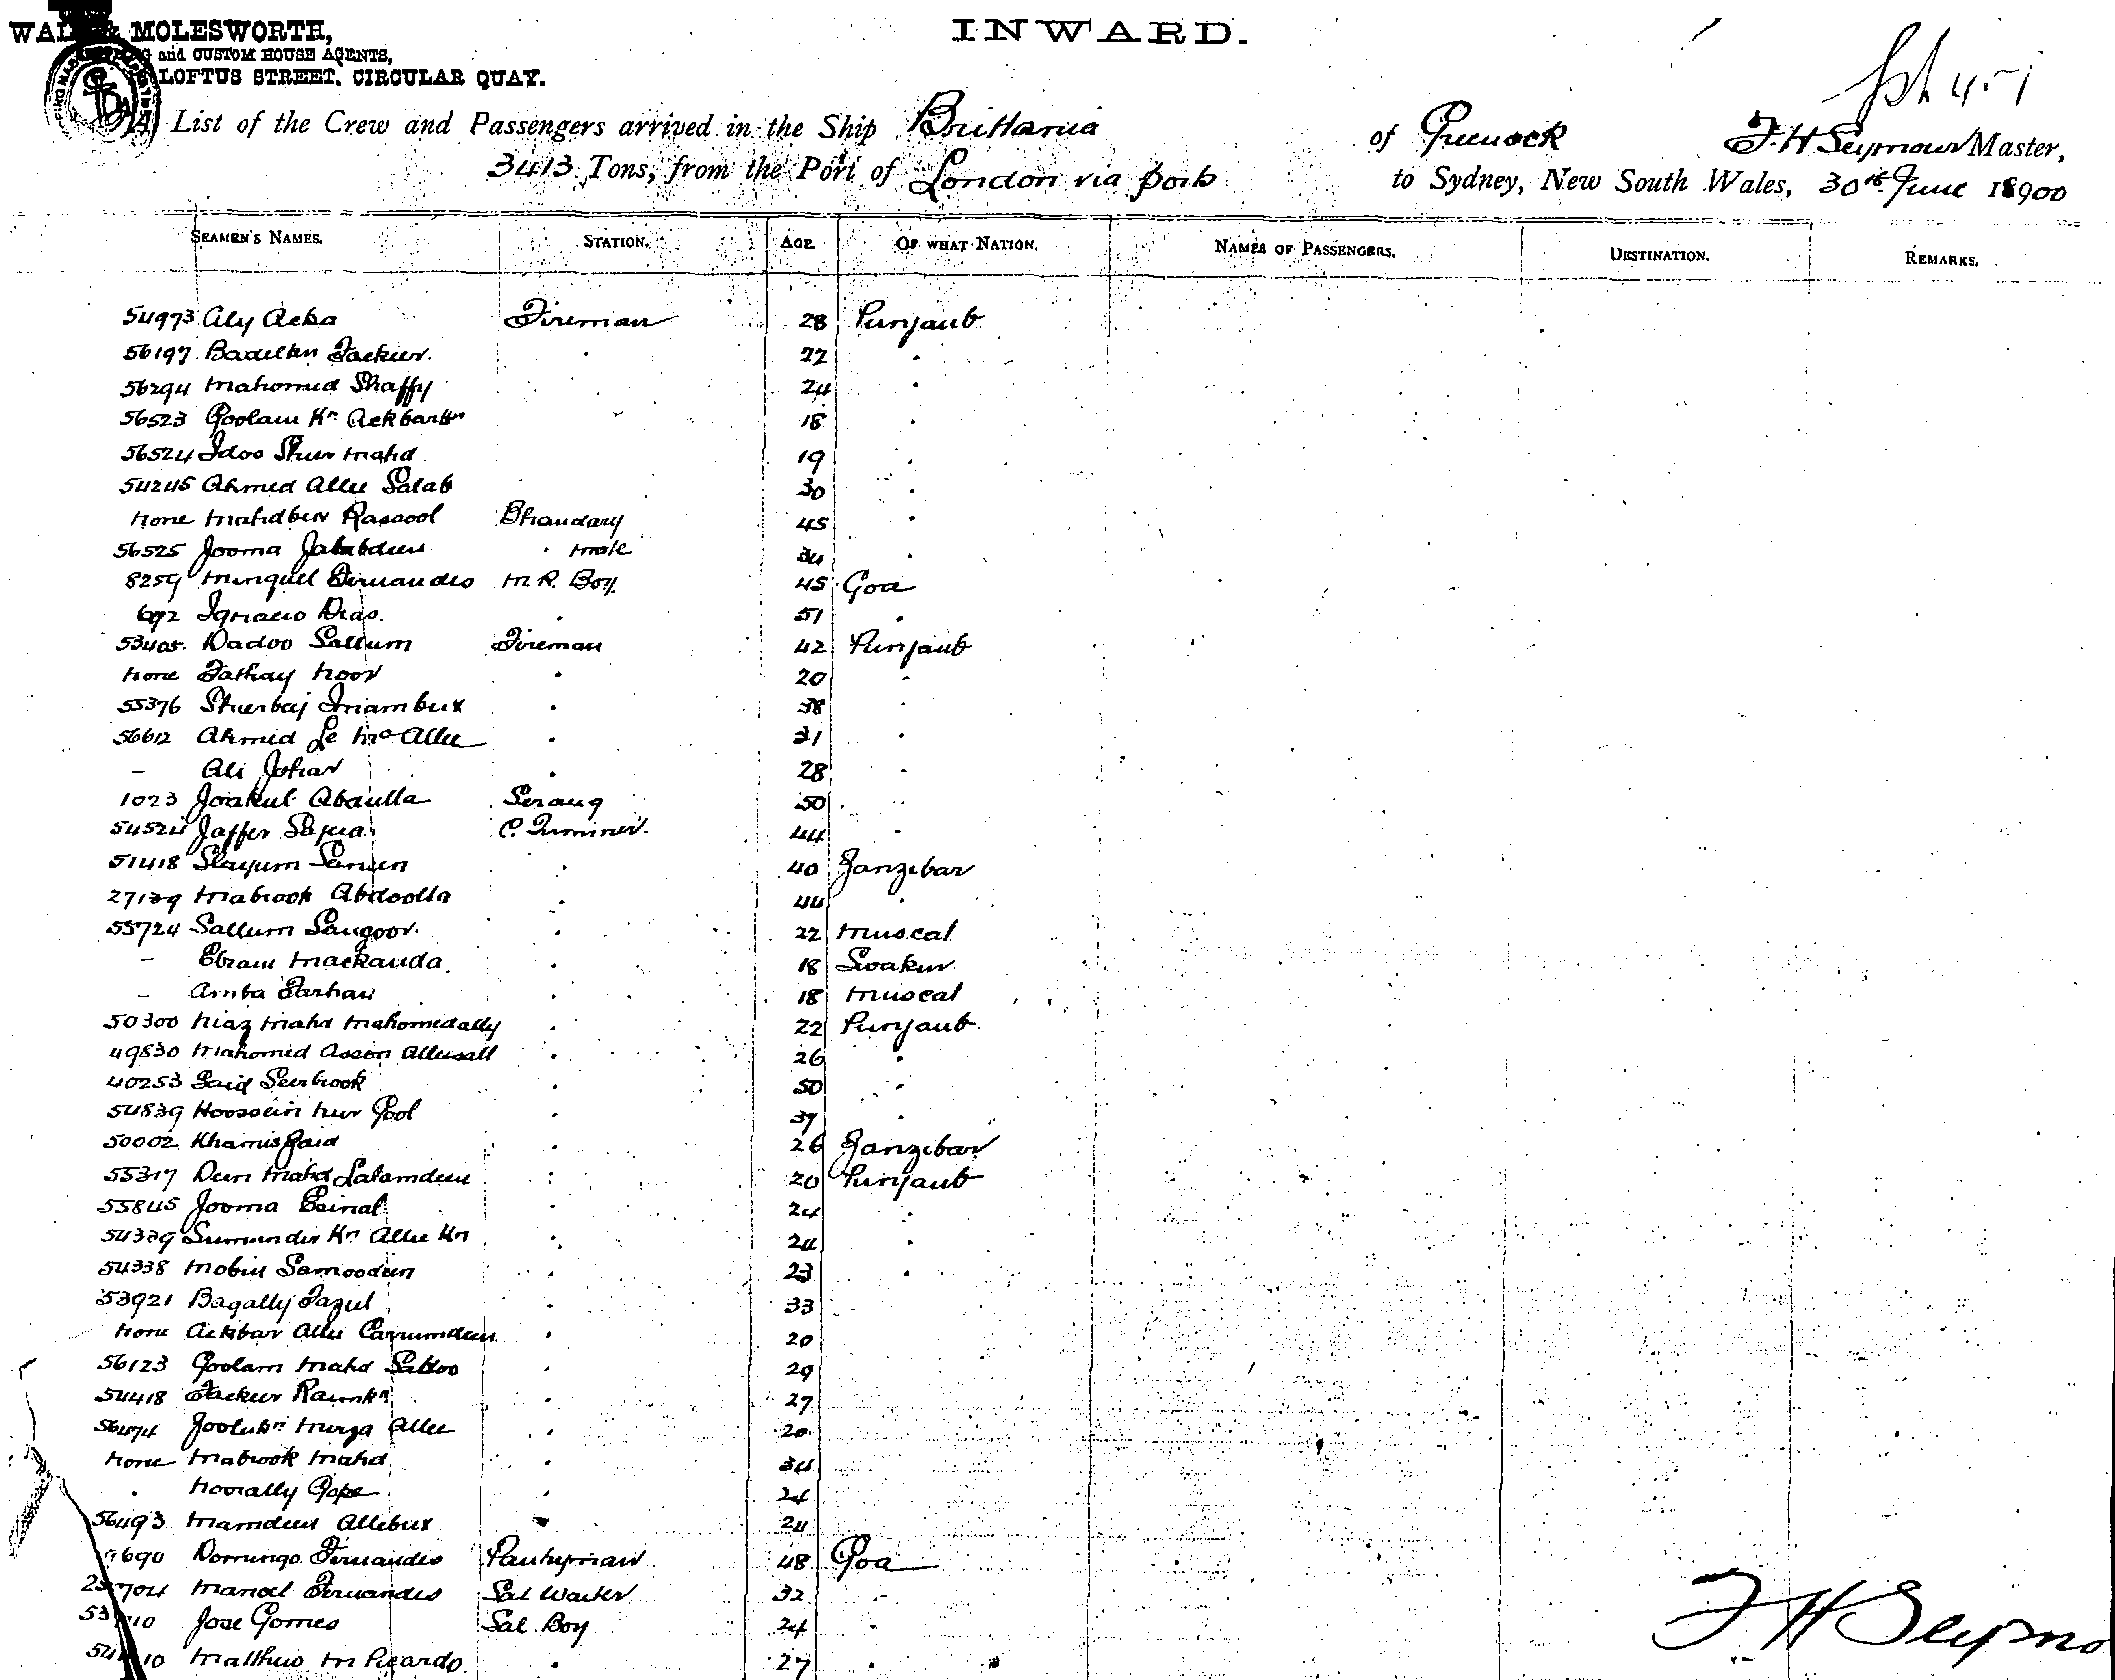 MOLESWORTH,
and CUSTOM HOUSE AGENTS,
LOFTUS STREET, CIRCULAR QUAY.
INWARD.
List of the Crew and Passengers arrived in the Ship Brittania of Greenock F. H Seymour Master,
3413 Tons, from the Port of London via ports to Sydney, New South Wales, 30th June 18900
SEAMEN'S NAMES. STATION. AGE OF WHAT NATION. NAMES OF PASSENGERS. DESTINATION. REMARKS.
54973 Aly Acka Fireman 28 Punjaub
56197 Fackeer 22
56294 Mahomed Shaffy 24
56523 Goolam Kn Ackbarkn 18
56524 Idoo Sheer Mahd 19
54245 Ahmed Allee Salab 30
None Rassool Bhandary 45
56525 Jooma " Mate 34
8259 Minguel Fernandes M. R. Boy. 45 Goa
692 Ignacio Dias. 51
53405 Dadoo Sallum Fireman 42 Punjaub
None Fathay Noor 20
55376 Sheerbaj Imambux 38
56612 Ahmed Mo Allee 31
- Ali Johar 28
1023 Abdulla Serang 50
54524 Jaffer C. Trimmer. 44
51418 40 Zanzibar
27139 Mabrook Abdoolla 44
55724 Sallum Sangoor. 22 Muscat
- Ebram Mackauda. 18 Suakin
- Amba Farhan 18 Muscat
50300 Niaz Mahd Mahomedally 22 Punjaub
49830 Mahomed Asson 26
40253 Said 50
54839 Hoossein Nur Gool 37
50002 Khamis Zaid 26 Zanzibar
55317 Deen Mahd Salamdeen 20 Punjaub
55845 Jooma 24
54339 Sumunder Kn Allee Kn 24
54338 Mobin Samoodeen 23
53921 Bagally Fazul 33
None Ackbar Allee Carrumdeen 20
56123 Goolam Mahd 29
54418 Fackeer Ramkn 27
56474 Mirza Allee 20
None Mabrook Mahd 34
" Noorally 24
56493 Mamdeen Allebux 24
9690 Domingo Fernandes Pantryman 48 Goa
704 Manoel Fernandes Sal Waiter 32
10 Jose Gomes Sal. Boy 24
10 Matthew M Picardo 27
F H Seymo